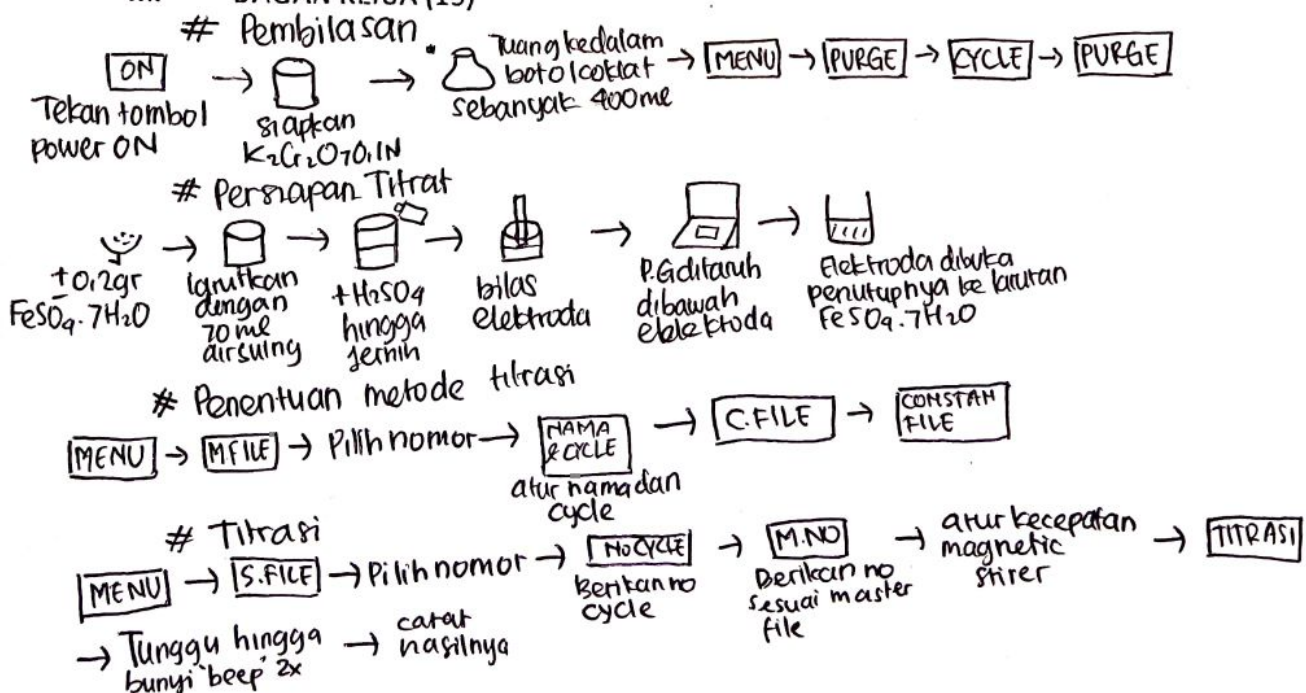 BAGAN KERJA (15)
# Pembilasan
ON → → Tuang kedalam botol coklat sebanyak 400 ml → MENU → PURGE → CYCLE → PURGE
Tekan tombol
power ON
siapkan
K2Cr2O7 0,1N
# Persiapan Titrat
± 0,2gr
FeSO4.7H2O
larutkan
dengan
70 ml
air suling
+ H2SO4
hingga
jernih
bilas
elektroda
P.G ditaruh
dibawah
elektroda
Elektroda dibuka
penutupnya ke larutan
FeSO4.7H2O
# Penentuan metode titrasi
MENU → M.FILE → Pilih nomor → NAMA & CYCLE → C.FILE → CONSTAN FILE
atur nama dan
cycle
# Titrasi
MENU → S.FILE → Pilih nomor → NO CYCLE → M.NO → atur kecepatan magnetic stirer → TITRASI
Berikan no
cycle
Berikan no
sesuai master
file
→ Tunggu hingga
bunyi 'beep' 2x
→ catat
hasilnya